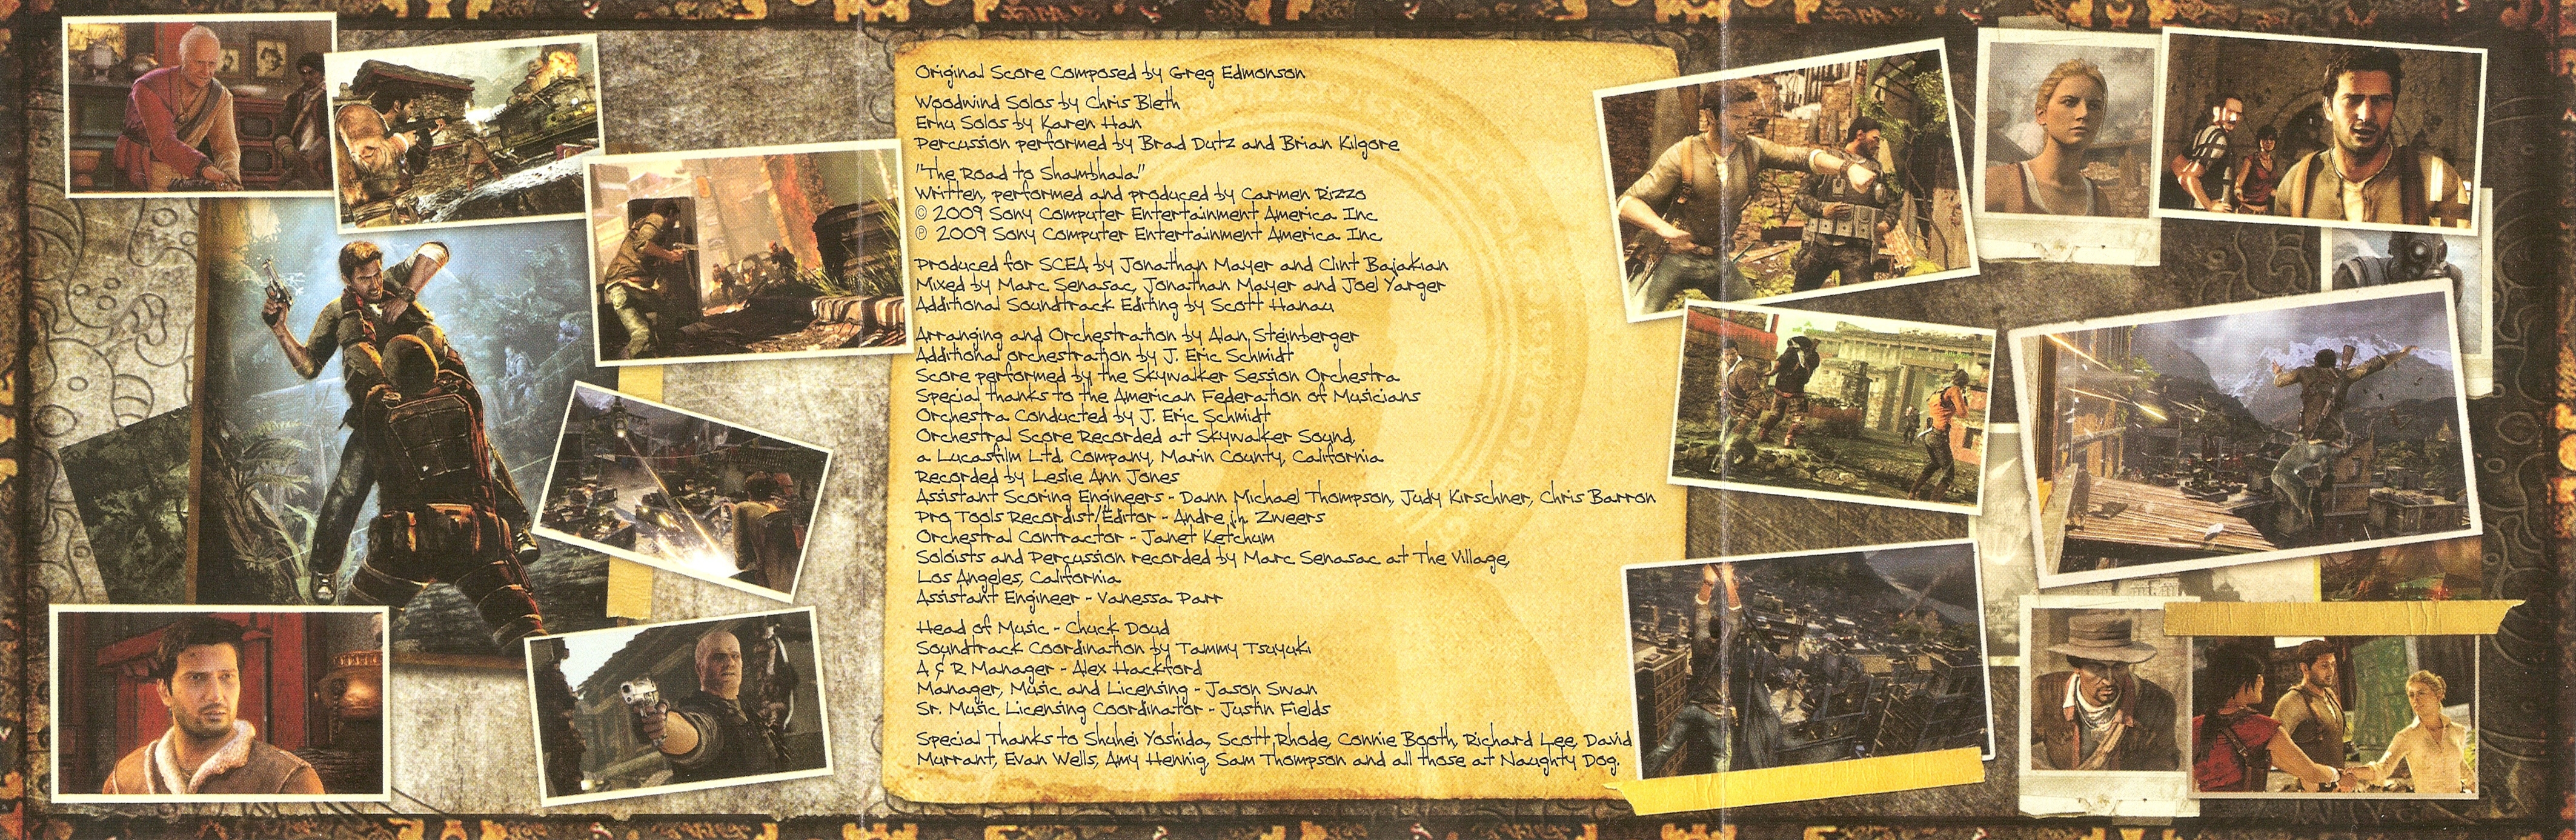 Original Score Composed by Greg Edmonson
Woodwind Solos by Chris Bleth
Erhu Solos by Karen Han
Percussion performed by Brad Dutz and Brian Kilgore
"The Road to Shambhala"
Written, performed and produced by Carmen Rizzo
© 2009 Sony Computer Entertainment America Inc.
℗ 2009 Sony Computer Entertainment America Inc.
Produced for SCEA by Jonathan Mayer and Clint Bajakian
Mixed by Marc Senasac, Jonathan Mayer and Joel Yarger
Additional Soundtrack Editing by Scott Hanau
Arranging and Orchestration by Alan Steinberger
Additional orchestration by J. Eric Schmidt
Score performed by the Skywalker Session Orchestra
Special thanks to the American Federation of Musicians
Orchestra Conducted by J. Eric Schmidt
Orchestral Score Recorded at Skywalker Sound,
a Lucasfilm Ltd. Company, Marin County, California
Recorded by Leslie Ann Jones
Assistant Scoring Engineers - Dann Michael Thompson, Judy Kirschner, Chris Barron
Pro Tools Recordist/Editor - Andre Zweers
Orchestral Contractor - Janet Ketchum
Soloists and Percussion recorded by Marc Senasac at The Village,
Los Angeles, California
Assistant Engineer - Vanessa Parr
Head of Music - Chuck Doud
Soundtrack Coordination by Tammy Tsuyuki
A & R Manager - Alex Hackford
Manager, Music and Licensing - Jason Swan
Sr. Music Licensing Coordinator - Justin Fields
Special Thanks to Shuhei Yoshida, Scott Rhode, Connie Booth, Richard Lee, David
Murrant, Evan Wells, Amy Hennig, Sam Thompson and all those at Naughty Dog.